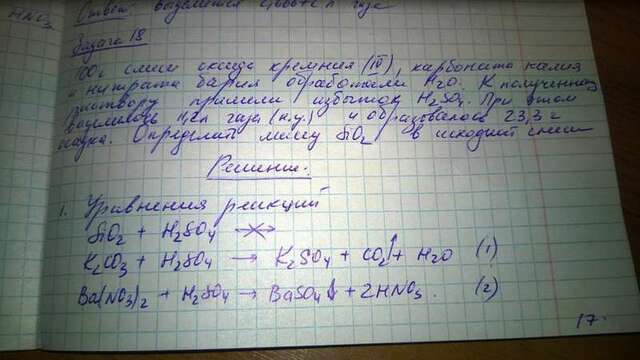 HNO3
Ответ: выделится л газа
Задача 18
100г смеси оксида кремния (IV), карбоната калия
и нитрата бария обработали H2O. К полученному
раствору прилили избыток H2SO4. При этом
выделилось 1,12л газа (н.у.) и образовалось 23,3 г
осадка. Определить массу SiO2 в исходной смеси
Решение:
1. Уравнения реакций
SiO2 + H2SO4 -×->
K2CO3 + H2SO4 → K2SO4 + CO2↑ + H2O (1)
Ba(NO3)2 + H2SO4 → BaSO4↓ + 2HNO3. (2)
17